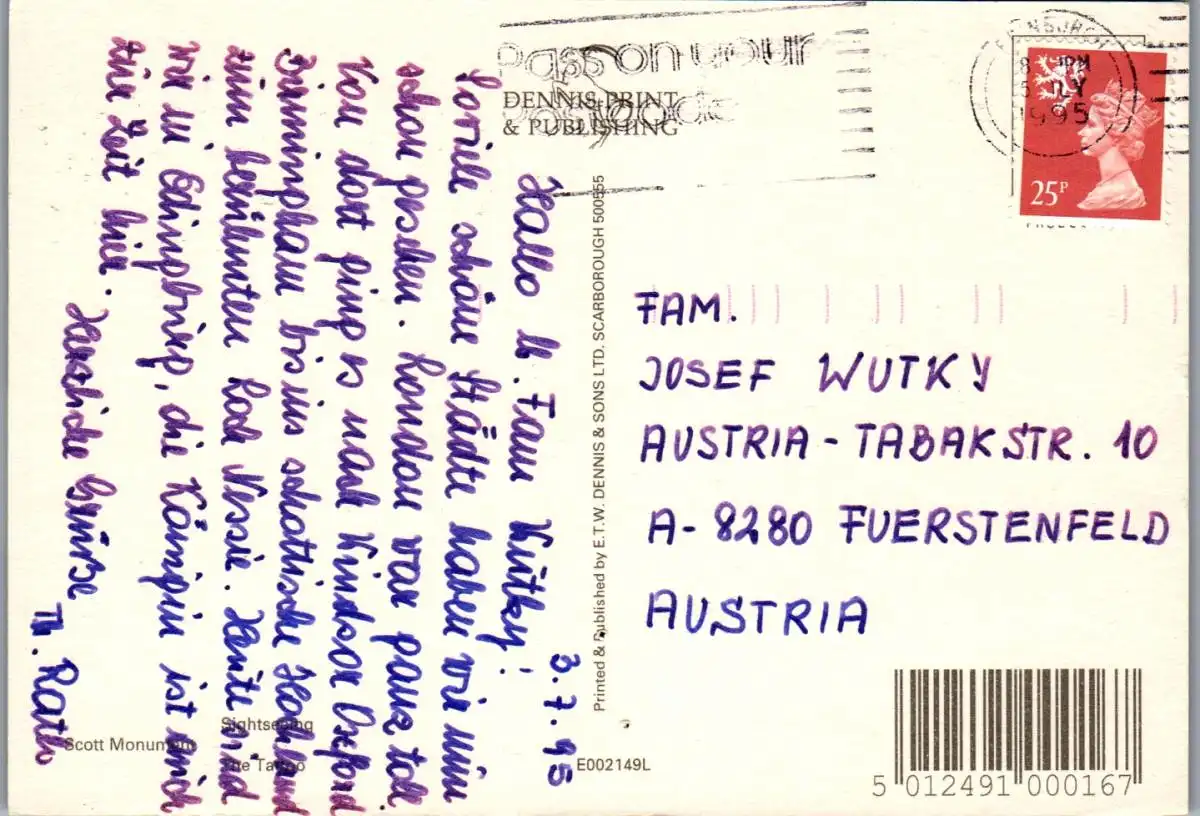 3.7.95
Hallo lb. Fam. Wutky!
Soviele schöne Städte haben wir nun
schon gesehen. London war ganz toll.
Von dort ging es nach Windsor Oxford
Birmingham bis ins schottische Hochland
zum berühmten Loch Nessie. Heute sind
wir in Edingburg, die Königin ist auch
zur Zeit hier.
Herzliche Grüße
Th. Rath
Pass on your
DENNIS PRINT
& PUBLISHING
1995
25P
FAM.
JOSEF WUTKY
AUSTRIA-TABAKSTR. 10
A-8280 FUERSTENFELD
AUSTRIA
Printed & Published by E.T.W. DENNIS & SONS LTD. SCARBOROUGH 500555
Sightseeing
Scott Monument
The Tattoo
E002149L
5 012491 000167